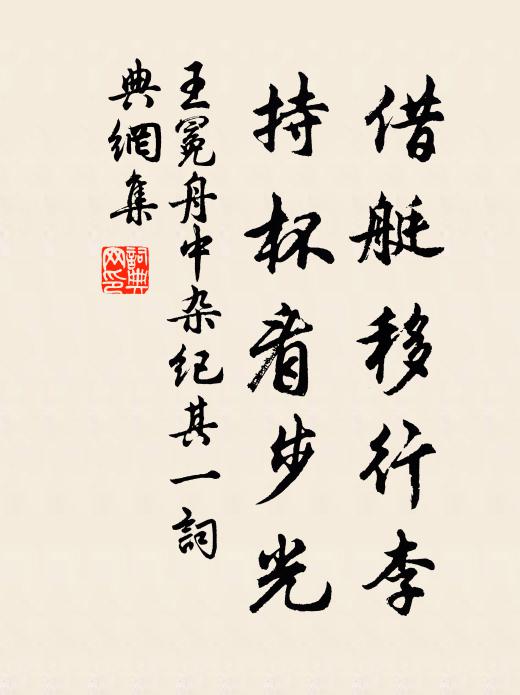 借艇移行李
持杯看步光
王冕舟中杂纪其一詞
典網集
詞典
网印